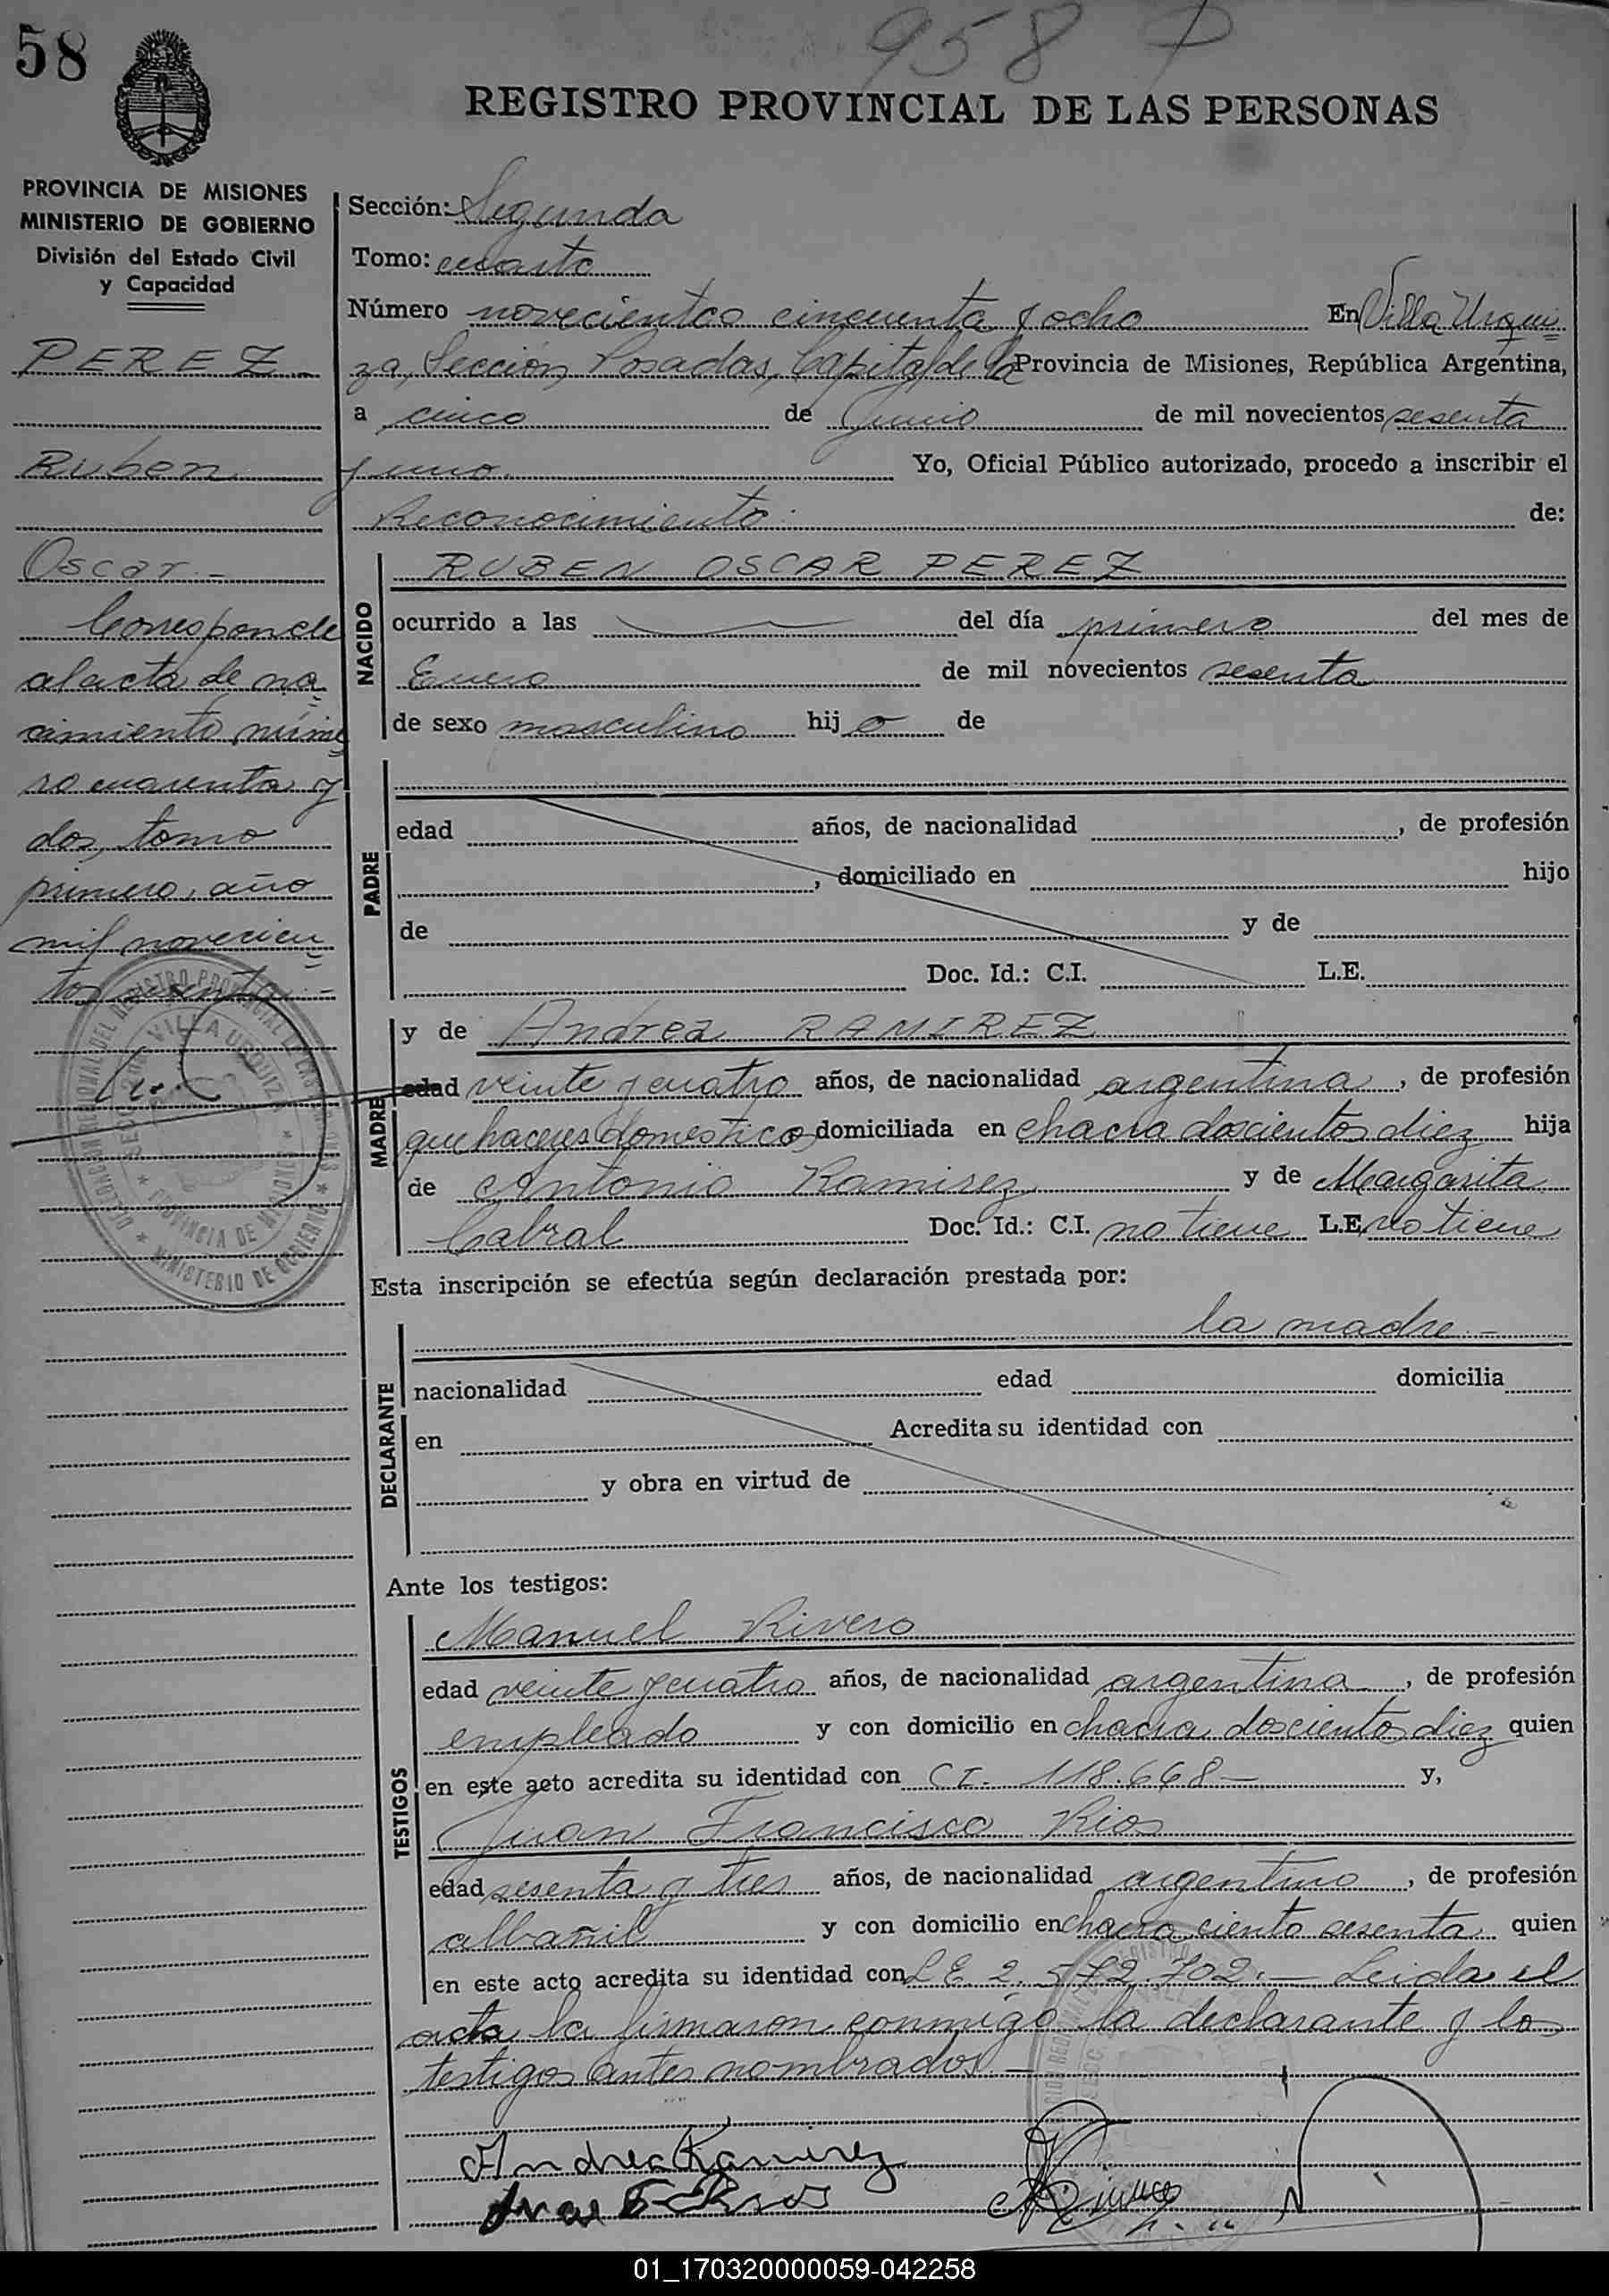 58
958 P
REGISTRO PROVINCIAL DE LAS PERSONAS
PROVINCIA DE MISIONES
MINISTERIO DE GOBIERNO
División del Estado Civil
y Capacidad
PEREZ
Ruben
Oscar.-
Corresponde
al acta de na
cimiento núme
ro cuarenta y
dos, tomo
primero, año
mil novecien
tos sesenta.-
Sección: Segunda
Tomo: cuarto
Número novecientos cincuenta y ocho En Villa Urqui
za, Sección Posadas, Capital de la Provincia de Misiones, República Argentina,
a cinco de Junio de mil novecientos sesenta
y uno. Yo, Oficial Público autorizado, procedo a inscribir el
Reconocimiento de:
NACIDO
RUBEN OSCAR PEREZ
ocurrido a las del día primero del mes de
Enero de mil novecientos sesenta
de sexo masculino hijo de
PADRE
edad años, de nacionalidad , de profesión
, domiciliado en hijo
de y de
Doc. Id.: C.I. L.E.
MADRE
y de Andrea RAMIREZ
edad veinte y cuatro años, de nacionalidad argentina, de profesión
quehaceres domesticos domiciliada en chacra doscientos diez hija
de Antonio Ramirez y de Margarita
Cabral Doc. Id.: C.I. no tiene L.E. no tiene
Esta inscripción se efectúa según declaración prestada por:
DECLARANTE
la madre.-
nacionalidad edad domicilia
en Acredita su identidad con
y obra en virtud de
Ante los testigos:
TESTIGOS
Manuel Rivero
edad veinte y cuatro años, de nacionalidad argentina, de profesión
empleado y con domicilio en chacra doscientos diez quien
en este acto acredita su identidad con C.I. 118.668- y,
Juan Francisco Rios
edad sesenta y tres años, de nacionalidad argentino, de profesión
albañil y con domicilio en chacra ciento sesenta quien
en este acto acredita su identidad con L E 2.572.702.- Leida el
acta la firmaron conmigo la declarante y los
testigos antes nombrados.-
Andrea Ramirez
Juan F Rios
DELEGACION REGIONAL DEL REGISTRO PROVINCIAL DE LAS PERSONAS
SECCION VILLA URQUIZA
PROVINCIA DE MISIONES
MINISTERIO DE GOBIERNO
01_170320000059-042258